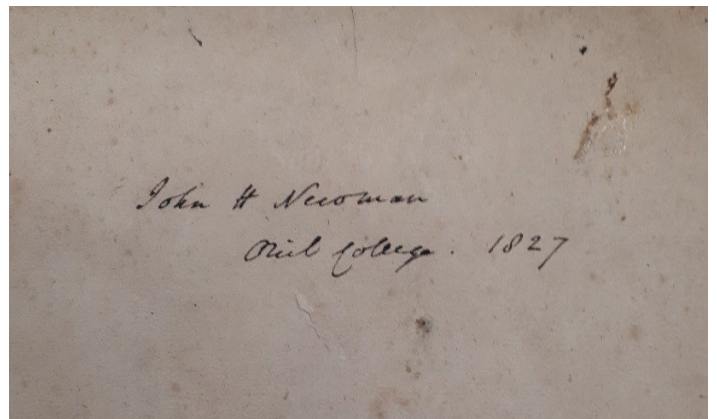 John H Newman
Oriel College. 1827